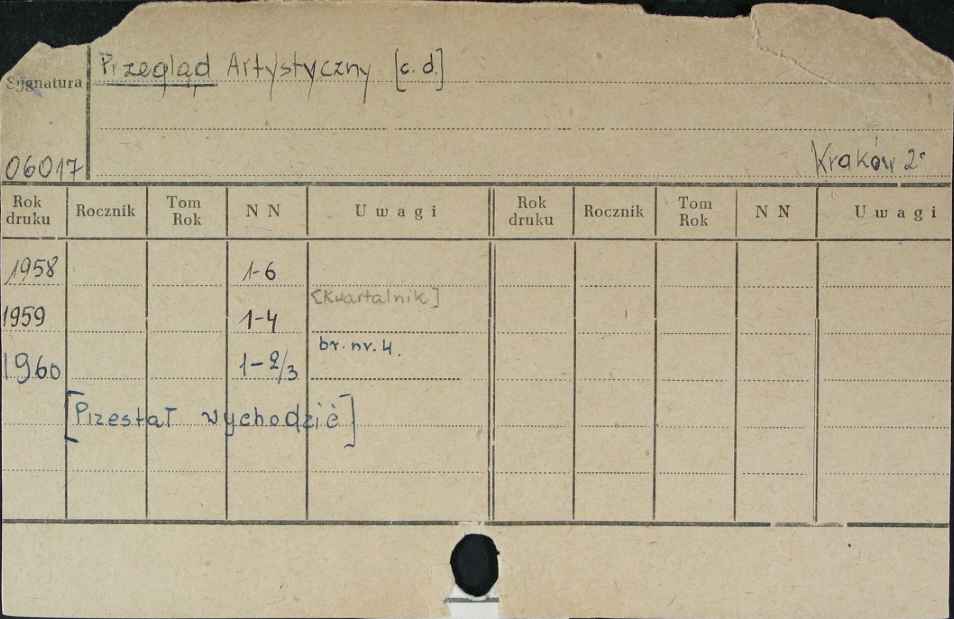 Przegląd Artystyczny [c.d.]
Sygnatura
06017
Kraków 2°
Rok druku Rocznik Tom Rok N N Uwagi Rok druku Rocznik Tom Rok N N Uwagi
1958 1-6
[Kwartalnik]
1959 1-4
br. nr. 4.
1960 1-2/3
[Przestał wychodzić]